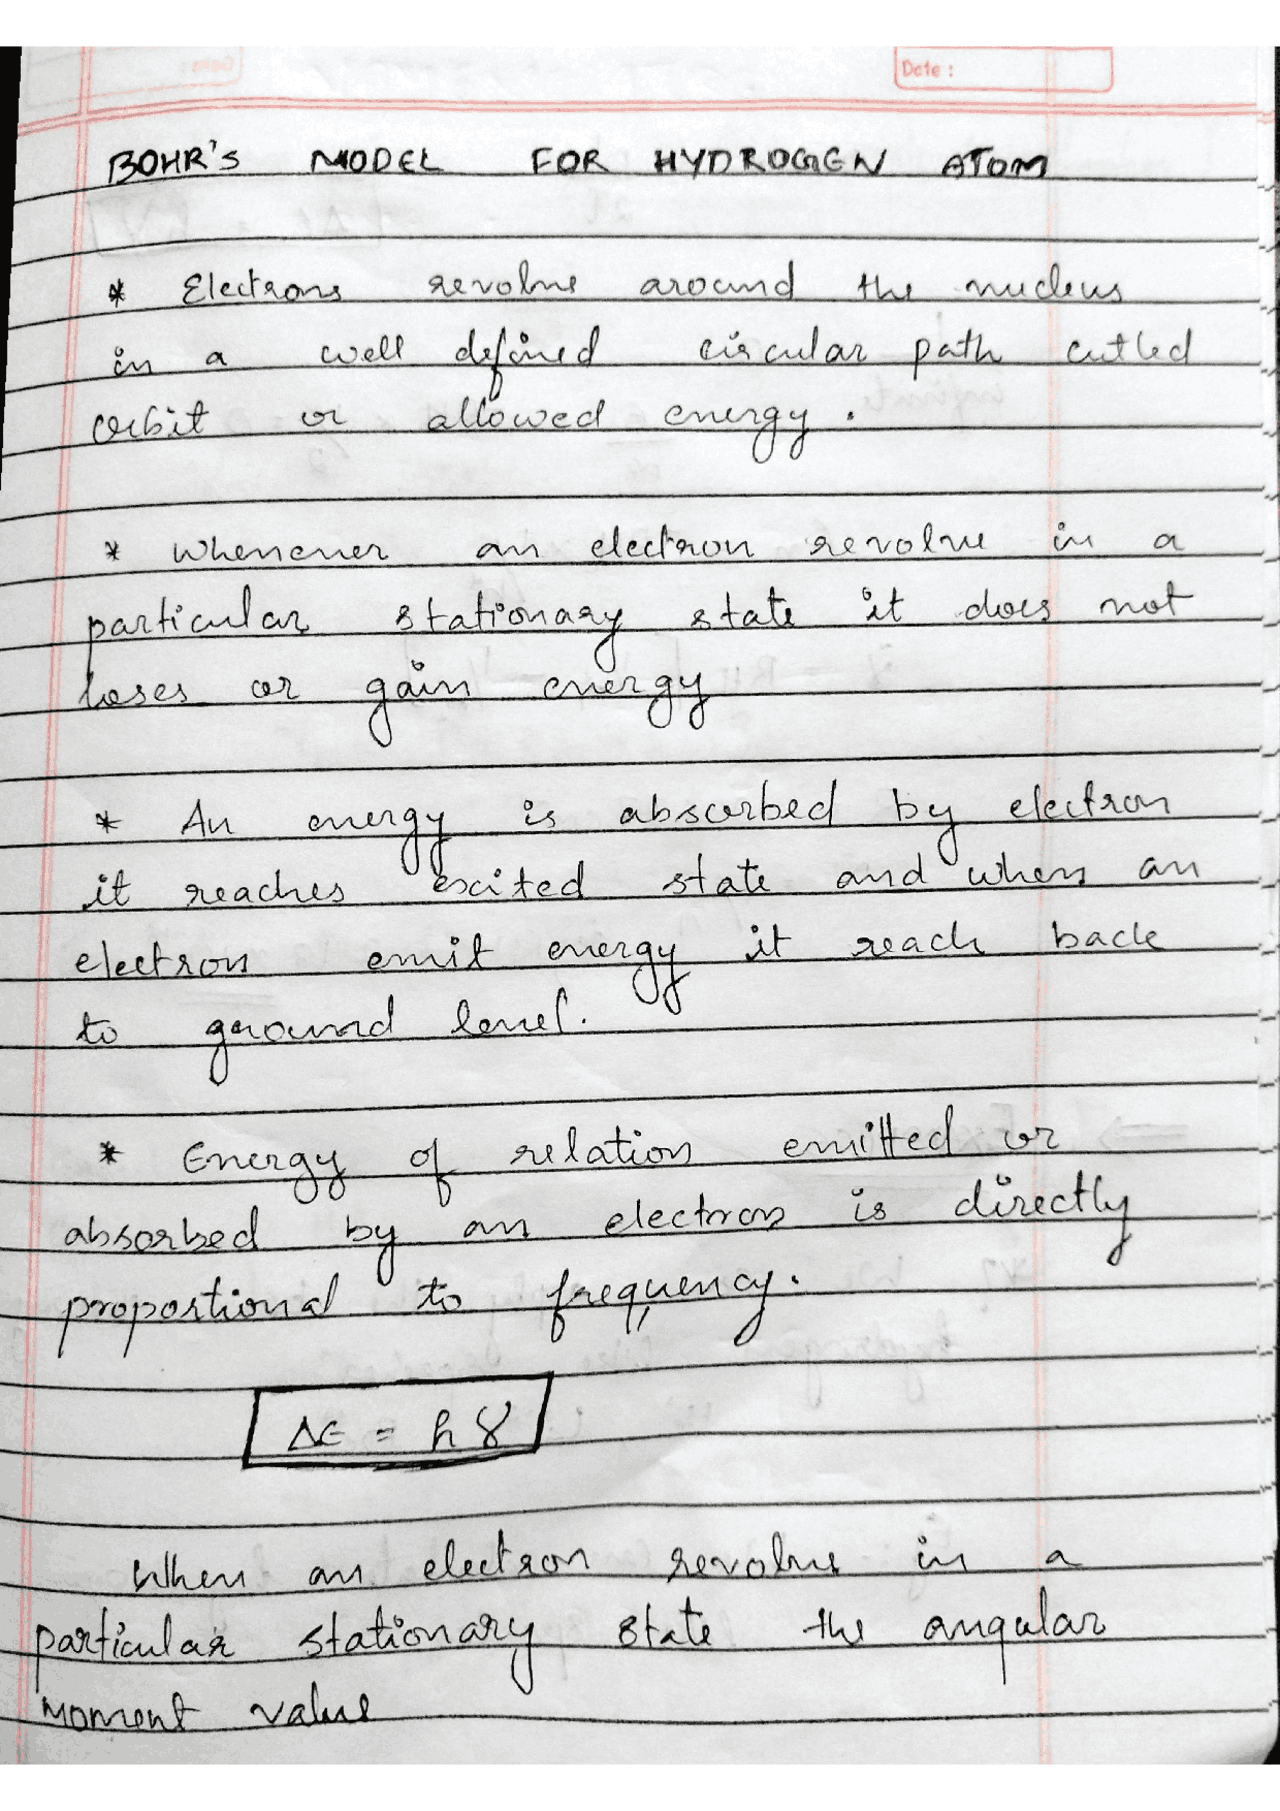 Date :
BOHR'S MODEL FOR HYDROGEN ATOM
* Electrons revolve around the nucleus
in a well defined circular path cutled
orbit or allowed energy.
* Whenever an electron revolve in a
particular stationary state it does not
loses or gain energy
* An energy is absorbed by electron
it reaches excited state and when an
electron emit energy it reach back
to ground level.
* Energy of relation emitted or
absorbed by an electron is directly
proportional to frequency.
ΔE = hγ
When an electron revolve in a
particular stationary state the angular
moment value